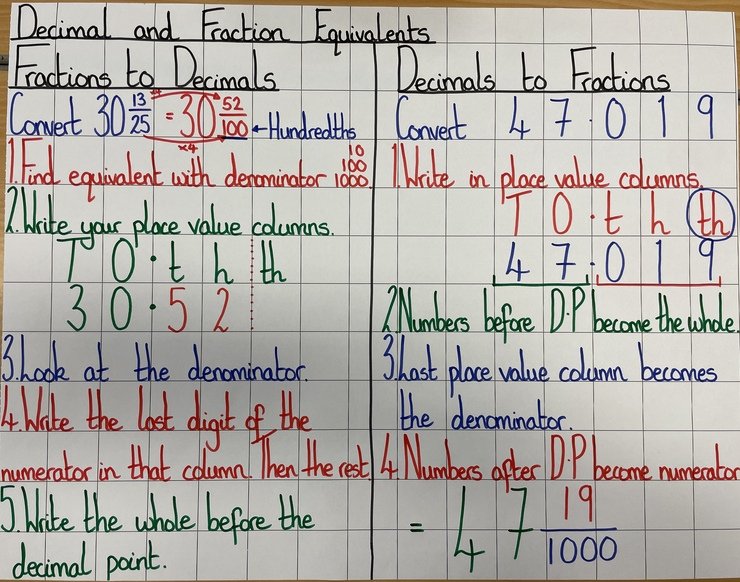 Decimal and Fraction Equivalents
Fractions to Decimals
Convert 30 13/25 = 30 52/100 ← Hundredths
×4
1. Find equivalent with denominator 10 100 1000.
2. Write your place value columns.
T O . t h th
3 0 . 5 2
3. Look at the denominator.
4. Write the last digit of the
numerator in that column. Then the rest.
5. Write the whole before the
decimal point.
Decimals to Fractions
Convert 47.019
1. Write in place value columns.
T O . t h th
4 7 . 0 1 9
2. Numbers before D.P become the whole.
3. Last place value column becomes
the denominator.
4. Numbers after D.P become numerator
= 47 19/1000